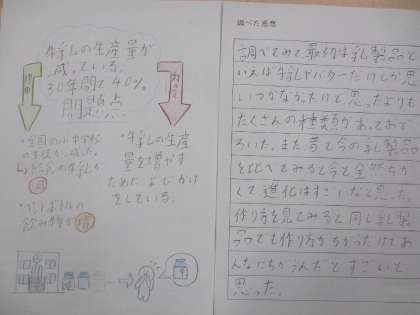 牛乳の生産量が
減っている。
30年間で40%
問題点
・全国の小中学校
の
給食の牛乳が
・牛乳の生産
量を増やす
ため
をしている。
・ペットボトルの
飲み物が増
調べた感想
調べてみて最初は乳製品と
いえば牛乳やバターだけしか思
いつかなかったけど、思ったよりも
たくさんの種類があっておど
ろいた。また昔と今の乳製品
を比べてみると今と全然ちが
くて進化はすごいなと思った。
作り方を見てみると同じ乳製
品でも作り方がちがうだけでこ
んなにちがうんだとすごいと
思った。